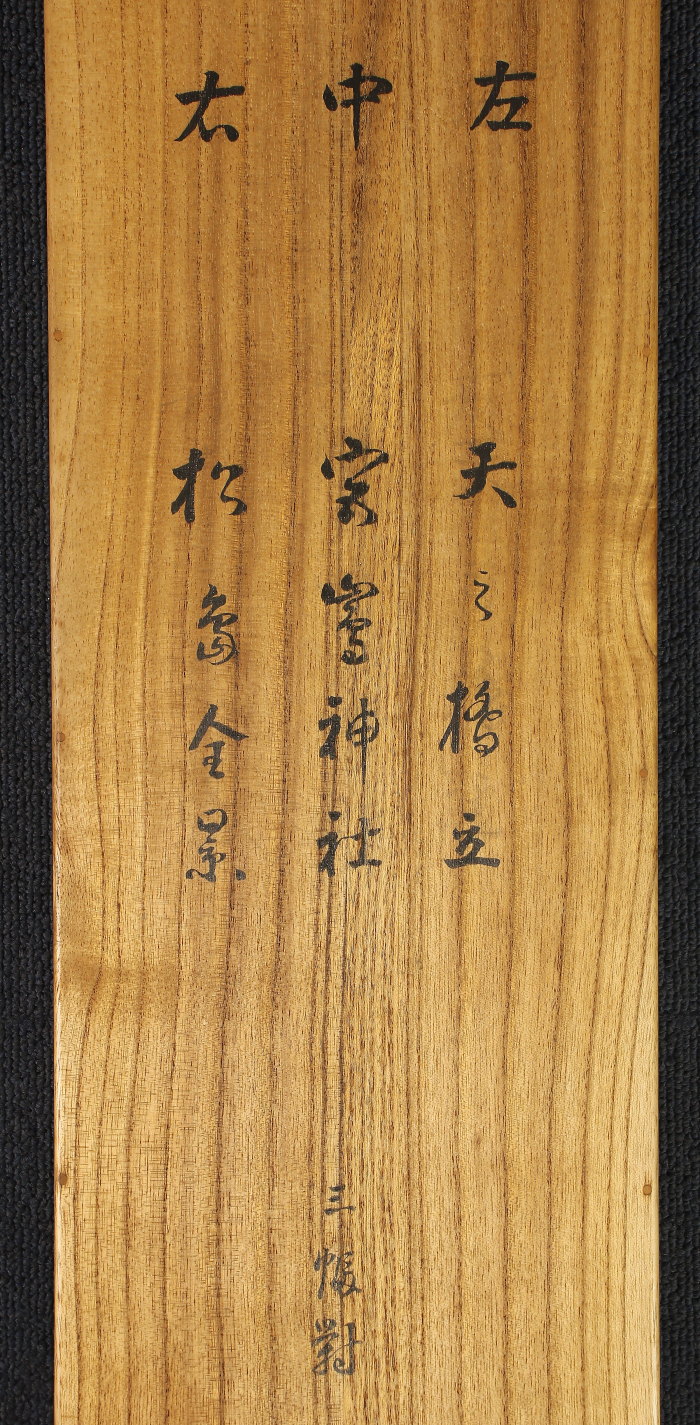 左 天之橋立
中 宮嶌神社
右 松島全景
三幅對